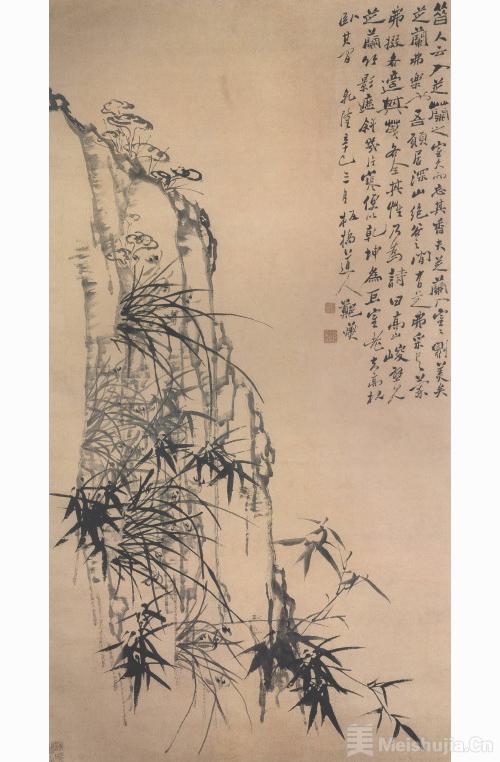 昔人云入芝蘭之室久而忘其香夫芝蘭入室室則美矣
芝蘭弗樂也吾願居深山絕谷之間有芝弗采有蘭
弗掇各適其天各全其性乃為詩曰高山峻壁見
芝蘭竹影遮斜幾片寒便以乾坤為巨室老夫高枕
臥其間 乾隆辛巳三月板橋道人鄭燮
美 Meishujia.Cn